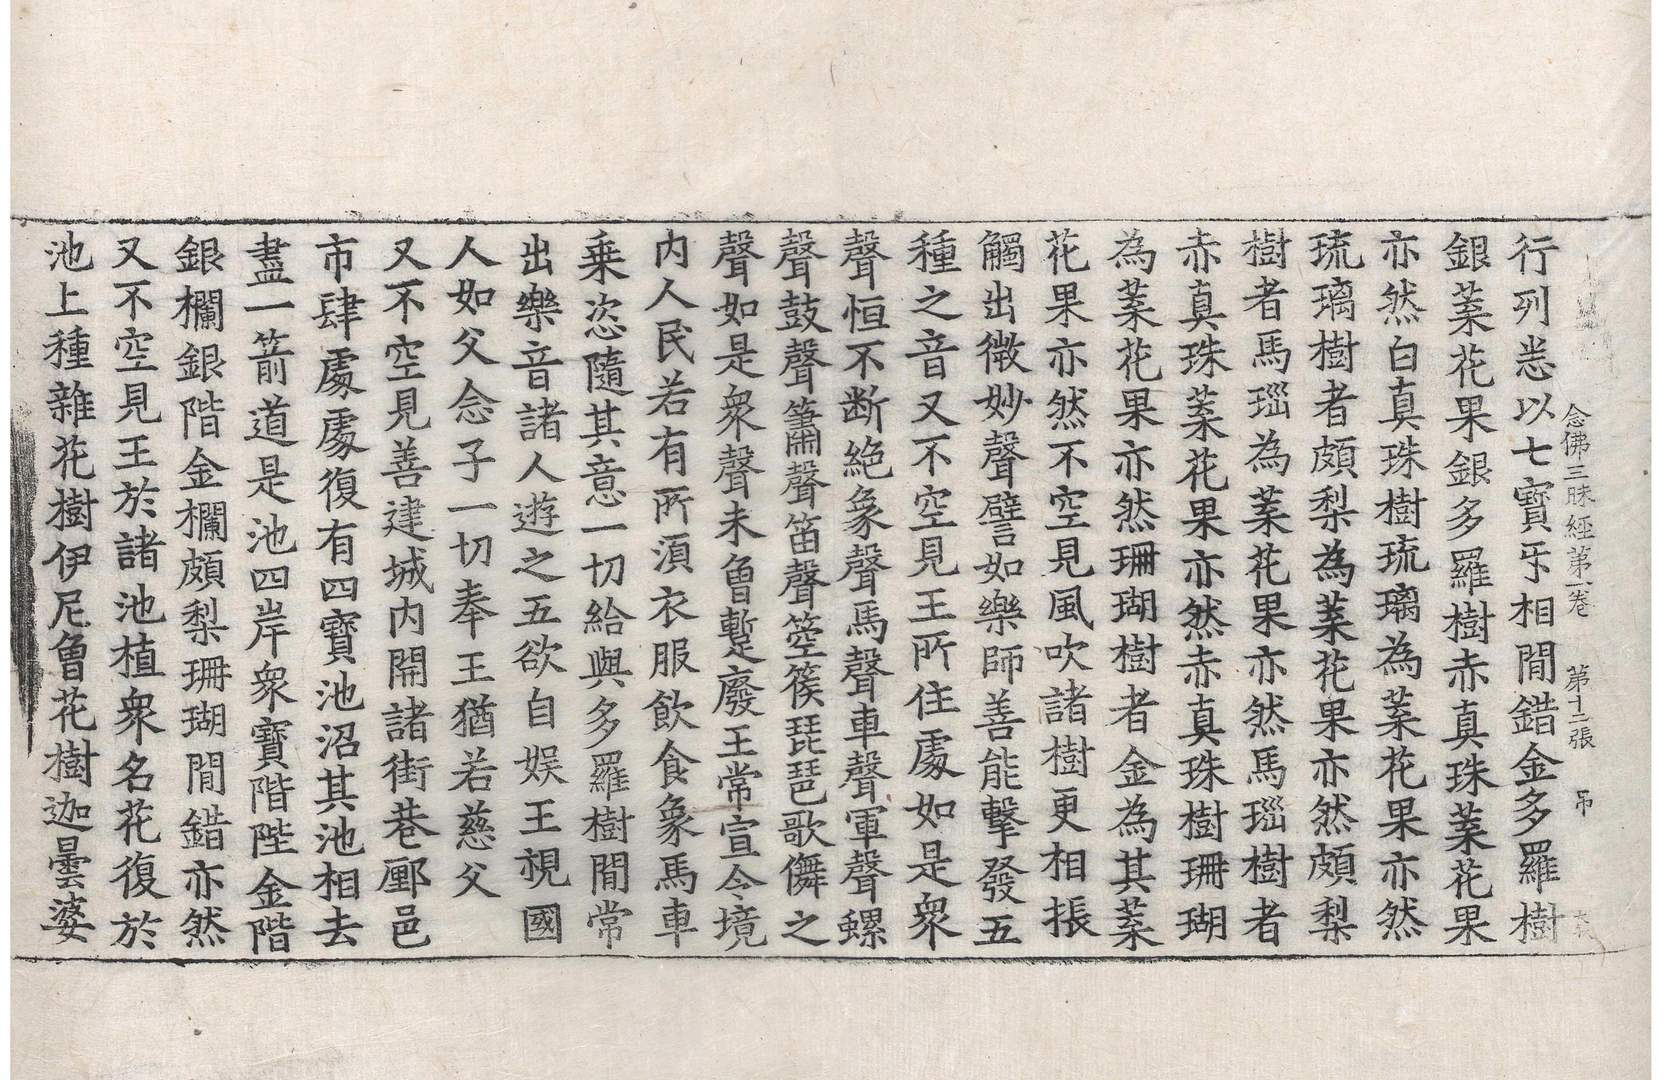 念佛三昧經第一卷 第十二張 吊
行列悉以七寶㸦相間錯金多羅樹
銀葉花果銀多羅樹赤真珠葉花果
亦然白真珠樹琉璃為葉花果亦然
琉璃樹者頗梨為葉花果亦然頗梨
樹者馬瑙為葉花果亦然馬瑙樹者
赤真珠葉花果亦然赤真珠樹珊瑚
為葉花果亦然珊瑚樹者金為其葉
花果亦然不空見風吹諸樹更相掁
觸出微妙聲譬如樂師善能擊發五
種之音又不空見王所住處如是衆
聲恒不断絶象聲馬聲車聲軍聲螺
聲鼓聲簫聲笛聲箜篌琵琶歌儛之
聲如是衆聲未曾蹔廢王常宣令境
内人民若有所湏衣服飲食象馬車
乗恣隨其意一切給與多羅樹間常
出樂音諸人遊之五欲自娱王視國
人如父念子一切奉王猶若慈父
又不空見善建城内開諸街巷鄽邑
市肆處處復有四寶池沼其池相去
盡一箭道是池四岸衆寶階陛金階
銀欄銀階金欄頗梨珊瑚間錯亦然
又不空見王於諸池植衆名花復於
池上種雜花樹伊尼曾花樹迦曇婆